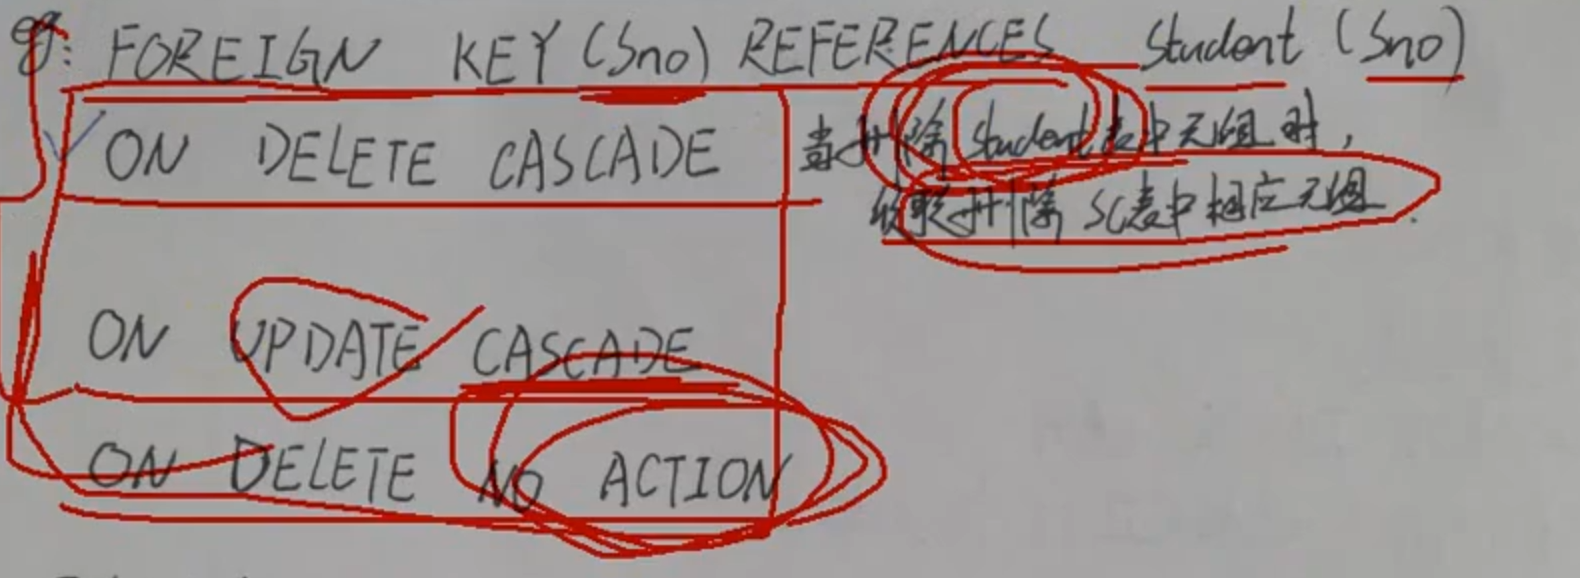 eg: FOREIGN KEY (Sno) REFERENCES Student (Sno)
ON DELETE CASCADE 当删除Student表中元组时,
级联删除SC表中相应元组.
ON UPDATE CASCADE
ON DELETE NO ACTION